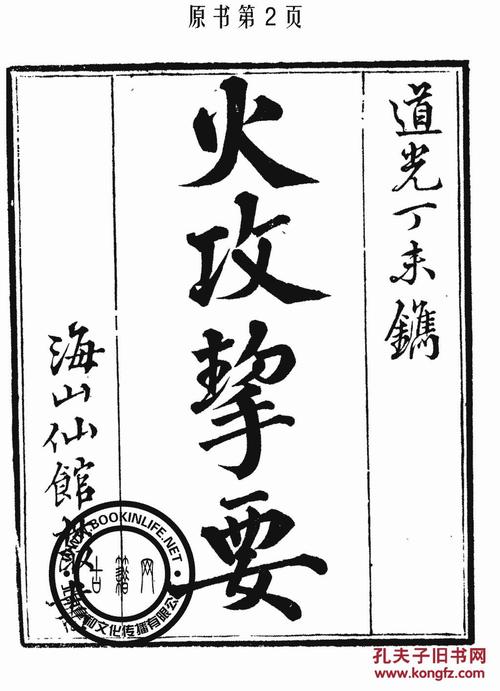 原书第2页
道光丁未鐫
火攻挈要
海山仙館叢書
WWW.BOOKINLIFE.NET
古籍网
文化传播有限公
孔夫子旧书网
www.kongfz.com